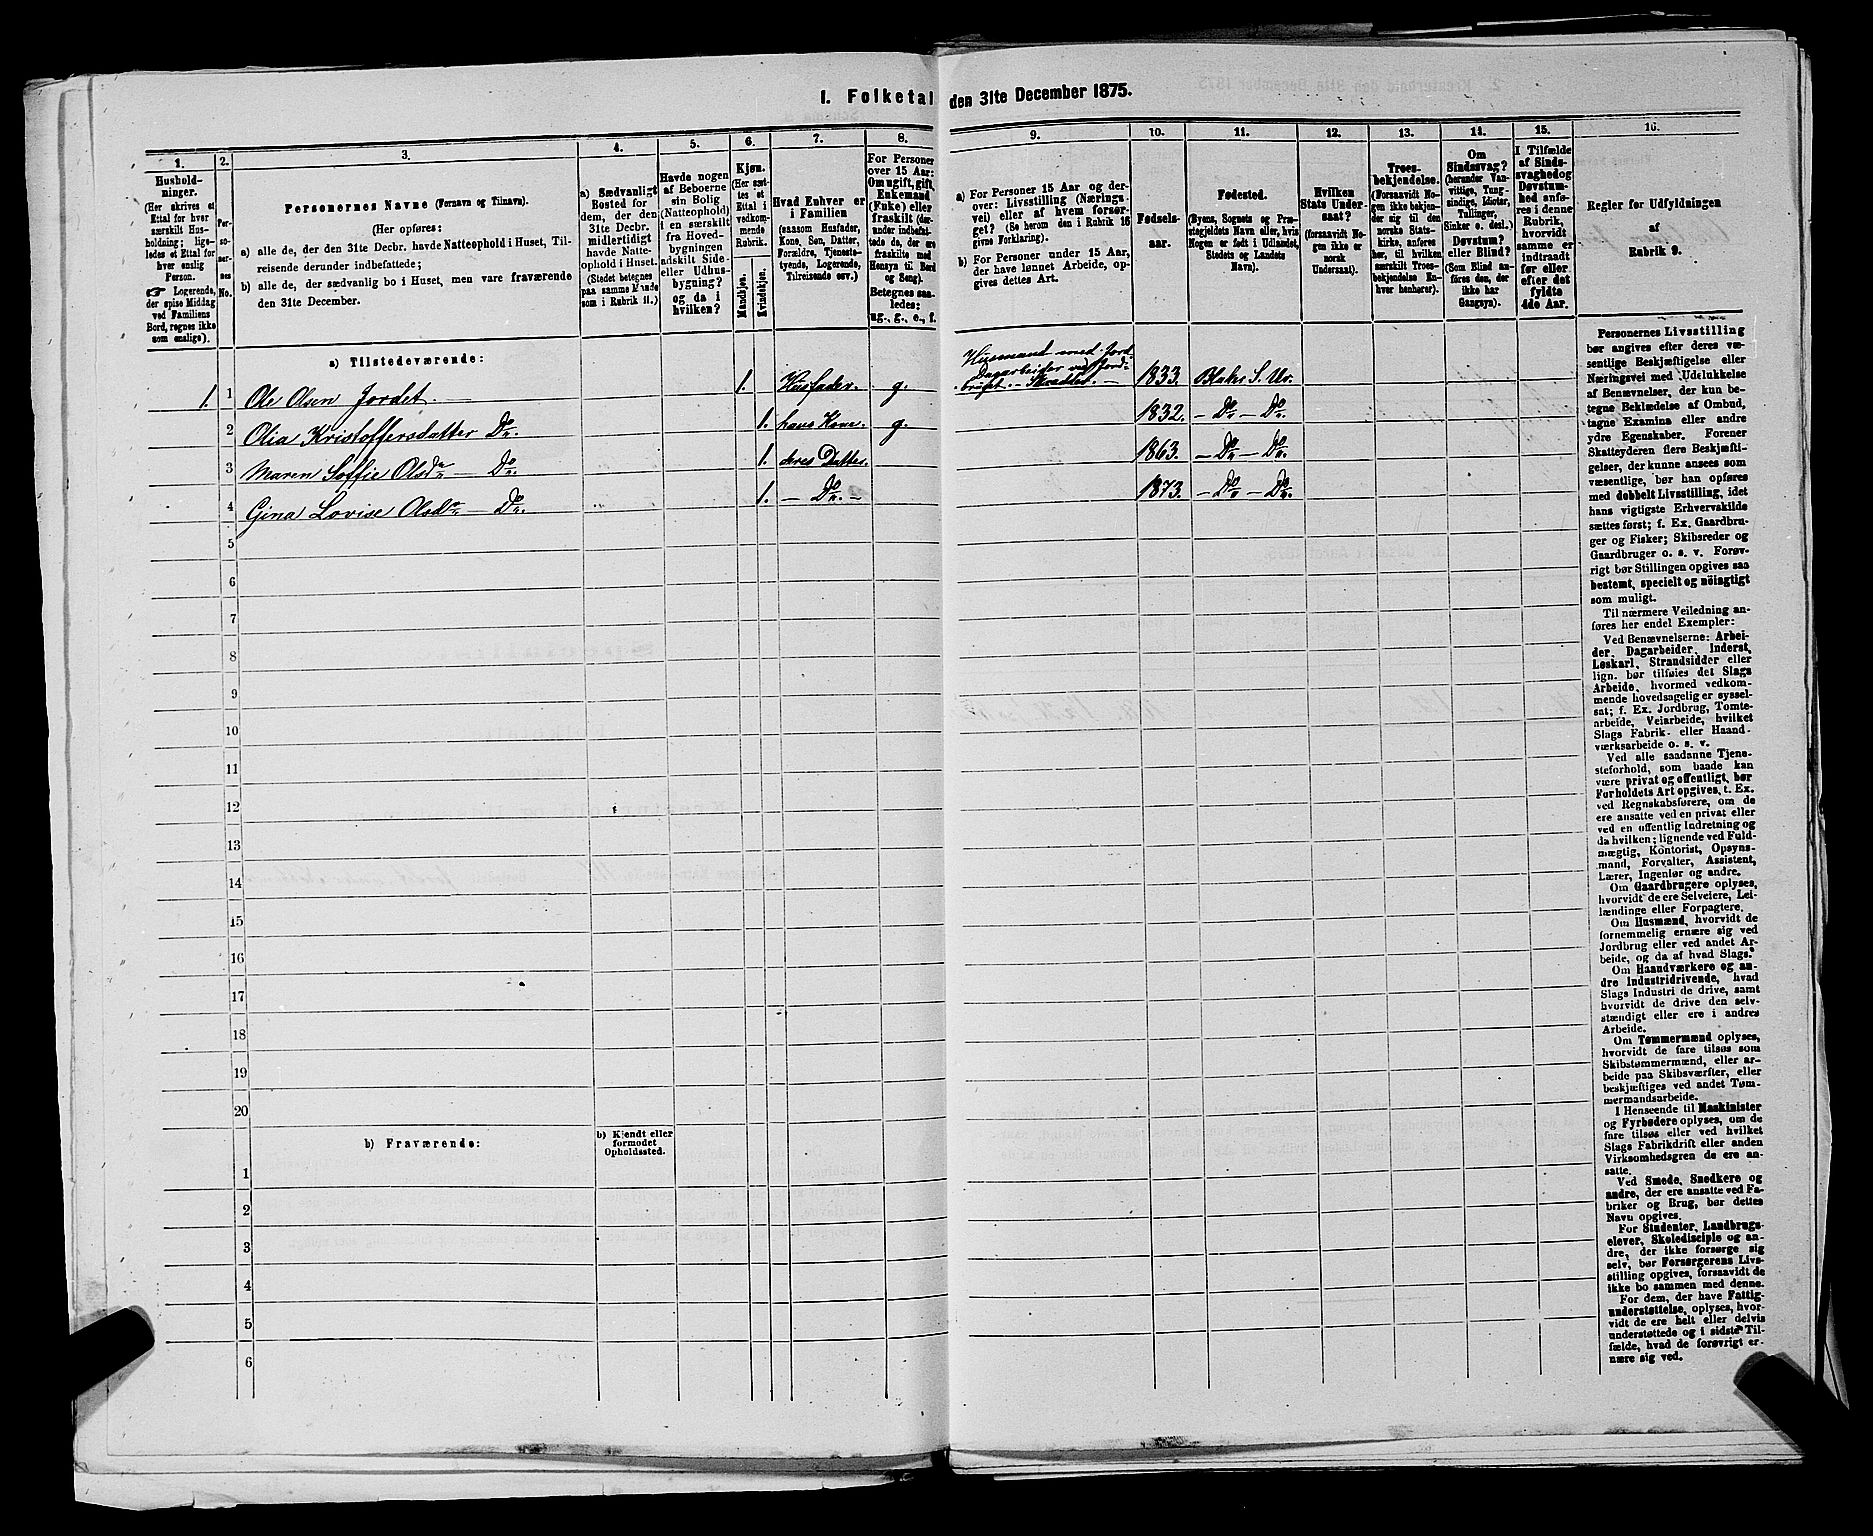 1. Folketal
den 31te December 1875.
1.
Hushold-
ninger.
(Her skrives et
Ettal for hver
særskilt Hus-
holdning; lige-
ledes et Ettal for
hver enslig
Person.
☞ Logerende,
der spise Middag
ved Familiens
Bord, regnes ikke
som enslige).
2.
Per-
so-
ner-
nes
No.
3.
Personernes Navne (Fornavn og Tilnavn).
(Her opføres:
a) alle de, der den 31te Decbr. havde Natteophold i Huset, Til-
reisende derunder indbefattede;
b) alle de, der sædvanlig bo i Huset, men vare fraværende
den 31te December.
4.
a) Sædvanligt
Bosted for
dem, der den
31te Decbr.
midlertidigt
havde Natte-
ophold i Huset.
(Stedet betegnes
paa samme Maade
som i Rubrik 11.)
5.
Havde nogen
af Beboerne
sin Bolig
(Natteophold)
i en særskilt
fra Hoved-
bygningen
adskilt Side-
eller Udhus-
bygning?
og da i
hvilken?
6.
Kjøn.
(Her sæt-
tes et
Ettal i
vedkom-
mende
Rubrik.
Mandkjøn.
Kvindekjøn.
7.
Hvad Enhver er
i Familien
(saasom Husfader,
Kone, Søn, Datter,
Forældre, Tjeneste-
tyende, Logerende,
Tilreisende osv.)
8.
For Personer
over 15 Aar:
Om ugift, gift,
Enkemand
(Enke) eller
fraskilt (der-
under indbefat-
tede de, der ere
fraskilte med
Hensyn til Bord
og Seng).
Betegnes saa-
ledes:
ug., g., e., f.
9.
a) For Personer 15 Aar og der-
over: Livsstilling (Nærings-
vei) eller af hvem forsør-
get? (Se herom den i Rubrik 16
givne Forklaring).
b) For Personer under 15 Aar,
der have lønnet Arbeide, op-
gives dettes Art.
10.
Fødsels-
aar.
11.
Fødested.
(Byens, Sognets og Præ-
stegjeldets Navn eller, hvis
Nogen er født i Udlandet,
Stedets og Landets
Navn).
12.
Hvilken
Stats Under-
saat?
(forsaavidt No-
gen ikke er
norsk
Undersaat).
13.
Troes-
bekjendelse.
(Forsaavidt Nogen
ikke bekjen-
der sig til den
norske Stats-
kirke, anføres
her, til hvilken
særskilt Troes-
bekjendelse En-
hver henhører).
14.
Om
Sindssvag?
(herunder Van-
vittige, Tung-
sindige, Idioter,
Tullinger,
Sinker o. desl.)
Døvstum?
eller Blind?
(Som Blind an-
føres den, der
ikke har
Gangsyn).
15.
I Tilfælde
af Sinds-
svaghed og
Døvstum-
hed anfø-
res i denne
Rubrik,
hvorvidt
samme er
indtraadt
før eller
efter det
fyldte
4de Aar.
16.
Regler for Udfyldningen
af
Rubrik 9.
a) Tilstedeværende:
1. 1 Ole Olsen Jordet 1. Husfader. g. Husmand med Jord. Dagarbeider ved Jordbruget. 1833.
2 Olia Kristoffersdatter Do. 1. hans Kone. g. 1832. – Do – Do.
3 Maren Soffie Olsdr – Do. 1. deres Datter. 1863. – Do – Do.
4 Gina Lovise Olsdr – Do. 1. – Do. – 1873. – Do – Do.
5
6
7
8
9
10
11
12
13
14
15
16
17
18
19
20
b) Fraværende:
b) Kjendt eller
formodet
Opholdssted.
1
2
3
4
5
6
Personernes Livsstilling
bør angives efter deres væ-
sentlige Beskjæftigelse eller
Næringsvei med Udelukkelse
af Benævnelser, der kun be-
tegne Beklædelse af Ombud,
tagne Examina eller andre
ydre Egenskaber. Forener
Skatteyderen flere Beskjæfti-
gelser, der kunne ansees som
væsentlige, bør han opføres
med dobbelt Livsstilling, idet
hans vigtigste Erhvervskilde
sættes først; f. Ex. Gaardbru-
ger og Fisker; Skibsreder og
Gaardbruger o. s. v. Forøv-
rigt bør Stillingen opgives saa
bestemt, specielt og nöiagtigt
som muligt.
Til nærmere Veiledning an-
føres her endel Exempler:
Ved Benævnelserne: Arbei-
der, Dagarbeider, Inderst,
Løskarl, Strandsidder eller
lign. bør tilføies det Slags
Arbeide, hvormed vedkom-
mende hovedsagelig er syssel-
sat; f. Ex. Jordbrug, Tomte-
arbeide, Veiarbeide, hvilket
Slags Fabrik- eller Haand-
værksarbeide o. s. v.
Ved alle saadanne Tjene-
steforhold, som baade kan
være privat og offentligt, bør
Forholdets Art opgives, t. Ex.
ved Regnskabsførere, om de
ere ansatte ved en privat eller
ved en offentlig Indretning og
da hvilken; lignende ved Fuld-
mægtig, Kontorist, Opsyns-
mand, Forvalter, Assistent,
Lærer, Ingeniør og andre.
Om Gaardbrugere oplyses,
hvorvidt de ere Selveiere, Lei-
lændinge eller Forpagtere.
Om Husmænd, hvorvidt de
fornemmelig ernære sig ved
Jordbrug eller ved andet Ar-
beide, og da af hvad Slags.
Om Haandværkere og an-
dre Industridrivende, hvad
Slags Industri de drive, samt
hvorvidt de drive den selv-
stændigt eller ere i andres
Arbeide.
Om Tømmermænd oplyses,
hvorvidt de fare tilsøs som
Skibstømmermænd, eller ar-
beide paa Skibsværfter, eller
beskjæftiges ved andet Tøm-
mermandsarbeide.
I Henseende til Maskinister
og Fyrbødere oplyses, om de
fare tilsøs eller ved hvilket
Slags Fabrikdrift eller anden
Virksomhedsgren de ere an-
satte.
Ved Smede, Snedkere og
andre, der ere ansatte ved Fa-
briker og Brug, bør dettes
Navn opgives.
For Studenter, Landbrugs-
elever, Skoledisciple og an-
dre, der ikke forsørge sig
selv, bør Forsørgerens Livs-
stilling opgives, forsaavidt de
ikke bo sammen med denne.
For dem, der have Fattig-
understøttelse, oplyses, hvor-
vidt de ere helt eller delvis
understøttede og i sidste Til-
fælde, hvad de forøvrigt er-
nære sig ved.